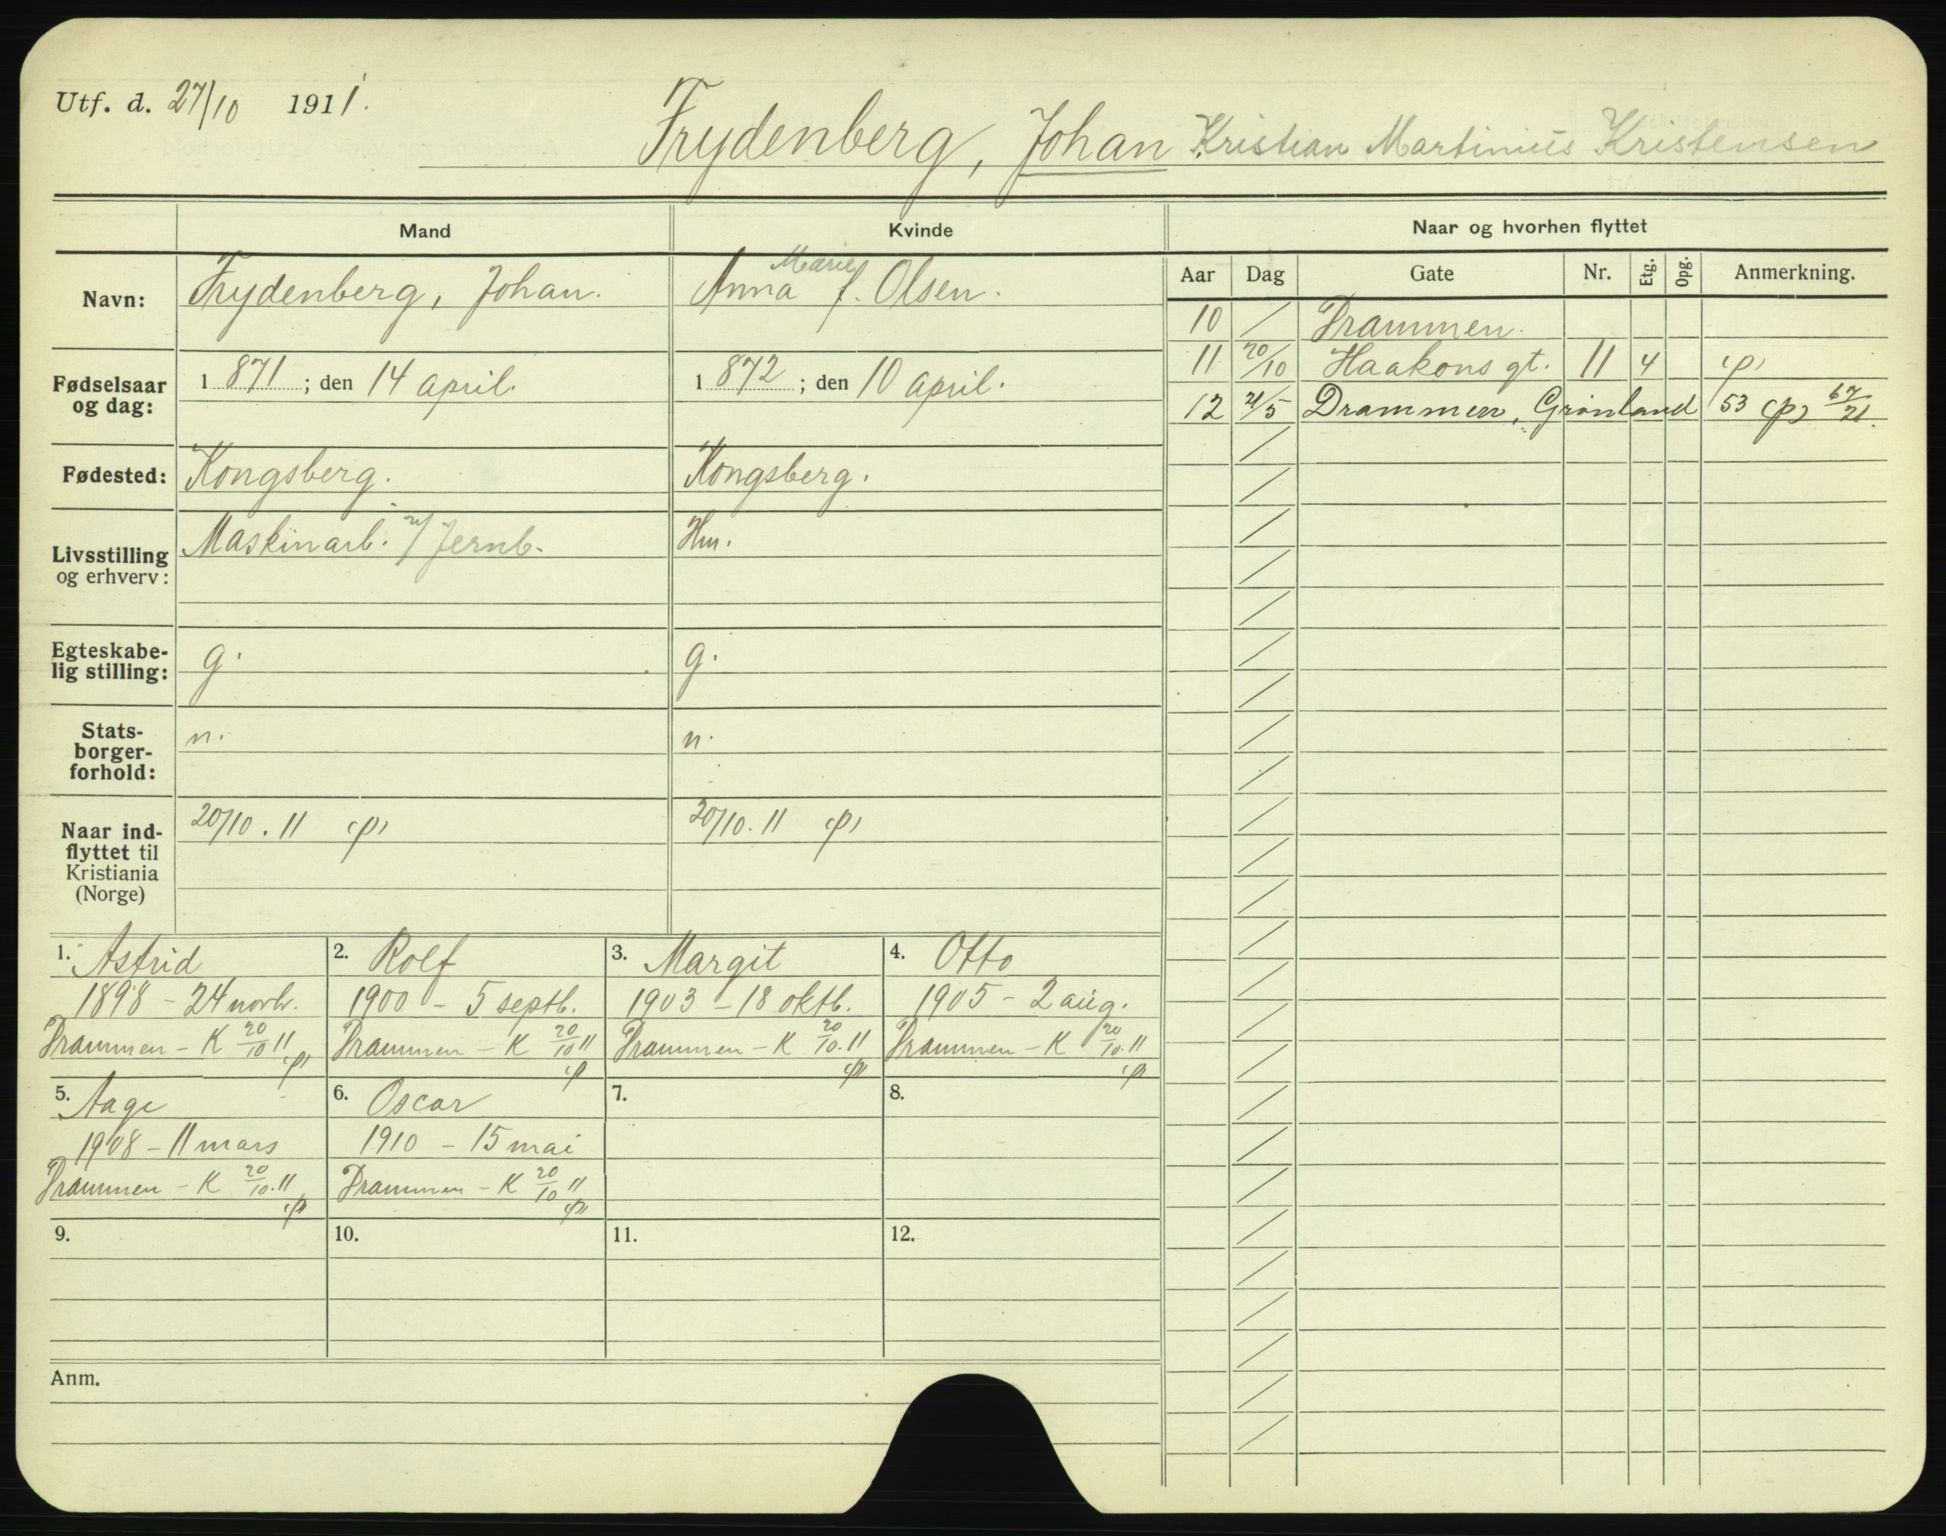 Utf. d. 27/10 1911.
Frydenberg, Johan Kristian Martinius Kristensen
Mand
Kvinde
Navn:
Frydenberg, Johan.
Anna Marie f. Olsen.
Fødselsaar og dag:
1 871 ; den 14 april.
1 872 ; den 10 april.
Fødested:
Kongsberg.
Kongsberg.
Livsstilling og erhverv:
Maskinarb. v/ Jernb.
Hm.
Egteskabe-
lig stilling:
g.
g.
Stats-
borger-
forhold:
n.
n.
Naar ind-
flyttet til
Kristiania
(Norge)
20/10. 11 (p)
20/10. 11 (p)
1. Astrid
1898 - 24 novb.
Drammen - K 20/10 11 (p)
2. Rolf
1900 - 5 septb.
Drammen - K 20/10 11 (p)
3. Margit
1903 - 18 oktb.
Drammen - K 20/10. 11 (p)
4. Otto
1905 - 2 aug.
Drammen - K 20/10. 11 (p)
5. Aage
1908 - 11 mars
Drammen - K 20/10. 11 (p)
6. Oscar
1910 - 15 mai
Drammen - K 20/10 11 (p)
7.
8.
9.
10.
11.
12.
Anm.
Naar og hvorhen flyttet
Aar Dag Gate Nr. Etg. Opg. Anmerkning.
10 / Drammen.
11 20/10 Haakons gt. 11 4 (p)
12 21/5 Drammen, Grønland 53 (p) 67/21.